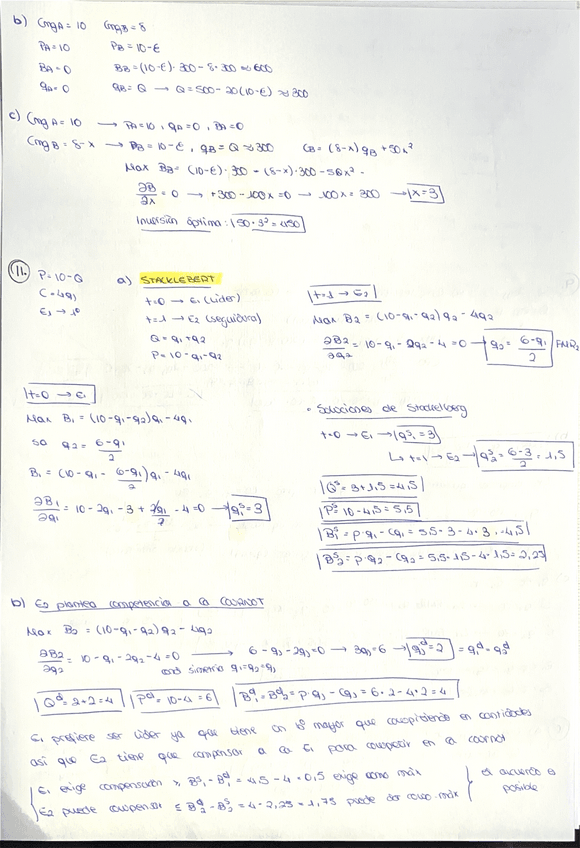 b) CmgA = 10 CmgB = 8
PA = 10 PB = 10-ε
BA = 0 BB = (10-ε)·300 - 8·300 ≈ 600
qA = 0 qB = Q → Q = 500 - 20(10-ε) ≈ 300
c) CmgA = 10 → PA = 10, qA = 0, BA = 0
CmgB = 8-x → PB = 10-ε, qB = Q ≈ 300 CB = (8-x)qB + 50x²
Max BB = (10-ε)·300 - (8-x)·300 - 50x²
∂B/∂x = 0 → +300 - 100x = 0 → 100x = 300 → x = 3
Inversión óptima: 50·3² = 450
11. P = 10-Q
C = 4q1
E1 → 1º
a) STACKLEBERT
t=0 → E1 (Líder)
t=1 → E2 (seguidora)
Q = q1+q2
P = 10-q1-q2
t=1 → E2
Max B2 = (10-q1-q2)q2 - 4q2
∂B2/∂q2 = 10-q1-2q2-4 = 0 → q2 = 6-q1/2 FMR2
t=0 → E1
Max B1 = (10-q1-q2)q1 - 4q1
sa q2 = 6-q1/2
B1 = (10-q1 - 6-q1/2)q1 - 4q1
∂B1/∂q1 = 10-2q1-3+2q1/2-4 = 0 → q1ˢ = 3
• Soluciones de Stackelberg
t=0 → E1 → q1ˢ = 3
↳ t=1 → E2 → q2ˢ = 6-3/2 = 1,5
Qˢ = 3+1,5 = 4,5
Pˢ = 10-4,5 = 5,5
B1ˢ = P·q1 - Cq1 = 5,5·3 - 4·3 = 4,5
B2ˢ = P·q2 - Cq2 = 5,5·1,5 - 4·1,5 = 2,25
b) E2 plantea competencia a la COURNOT
Max B2 = (10-q1-q2)q2 - 4q2
∂B2/∂q2 = 10-q1-2q2-4 = 0 → 6-q2-2q2=0 → 3q2=6 → q2ᵈ = 2 = q1ᵈ = q2ᵈ
cond simetría q1=q2=q2
Qᵈ = 2+2 = 4 Pᵈ = 10-4 = 6 B1ᵈ = B2ᵈ = P·q2 - Cq2 = 6·2 - 4·2 = 4
E1 prefiere ser líder ya que tiene un Bº mayor que compitiendo en cantidades
así que E2 tiene que compensar a la E1 para competir en la cournot
E1 exige compensación ≥ B1ˢ - B1ᵈ = 4,5 - 4 = 0,5 exige como máx
E2 puede compensar ≤ B2ᵈ - B2ˢ = 4 - 2,25 = 1,75 puede dar como máx
el acuerdo es
posible